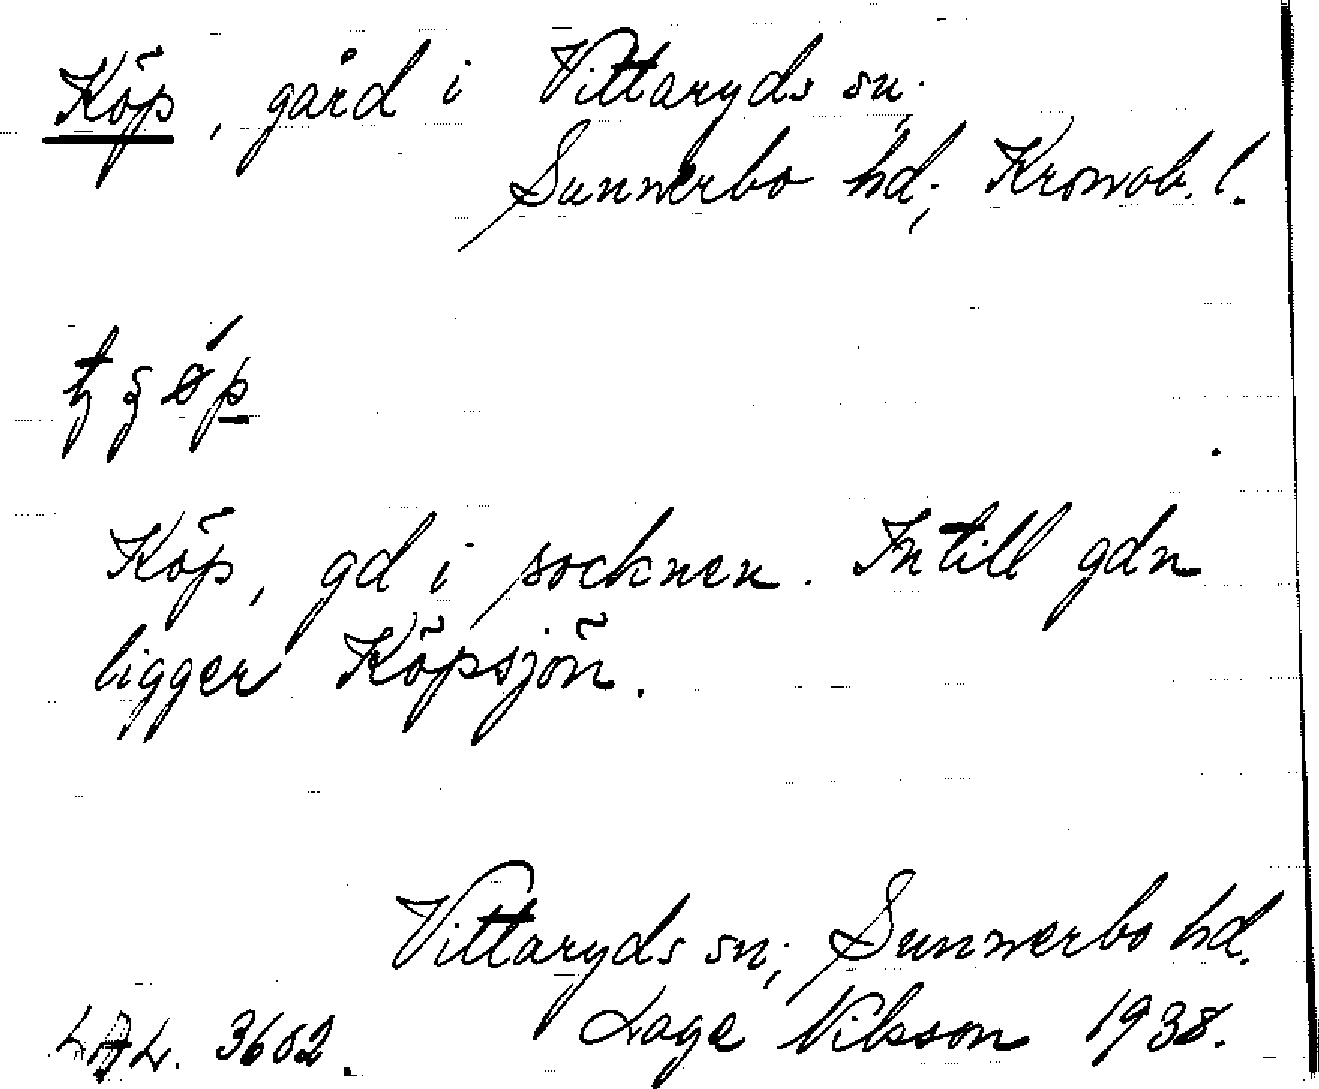 Köp, gård i Vittaryds sn.,
Sunnerbo hd., Kronob. l.
Köp, gd i socknen. Intill gdn
ligger Köpsjön.
Vittaryds sn., Sunnerbo hd.
LAL. 3602. Lage Nilsson 1938.